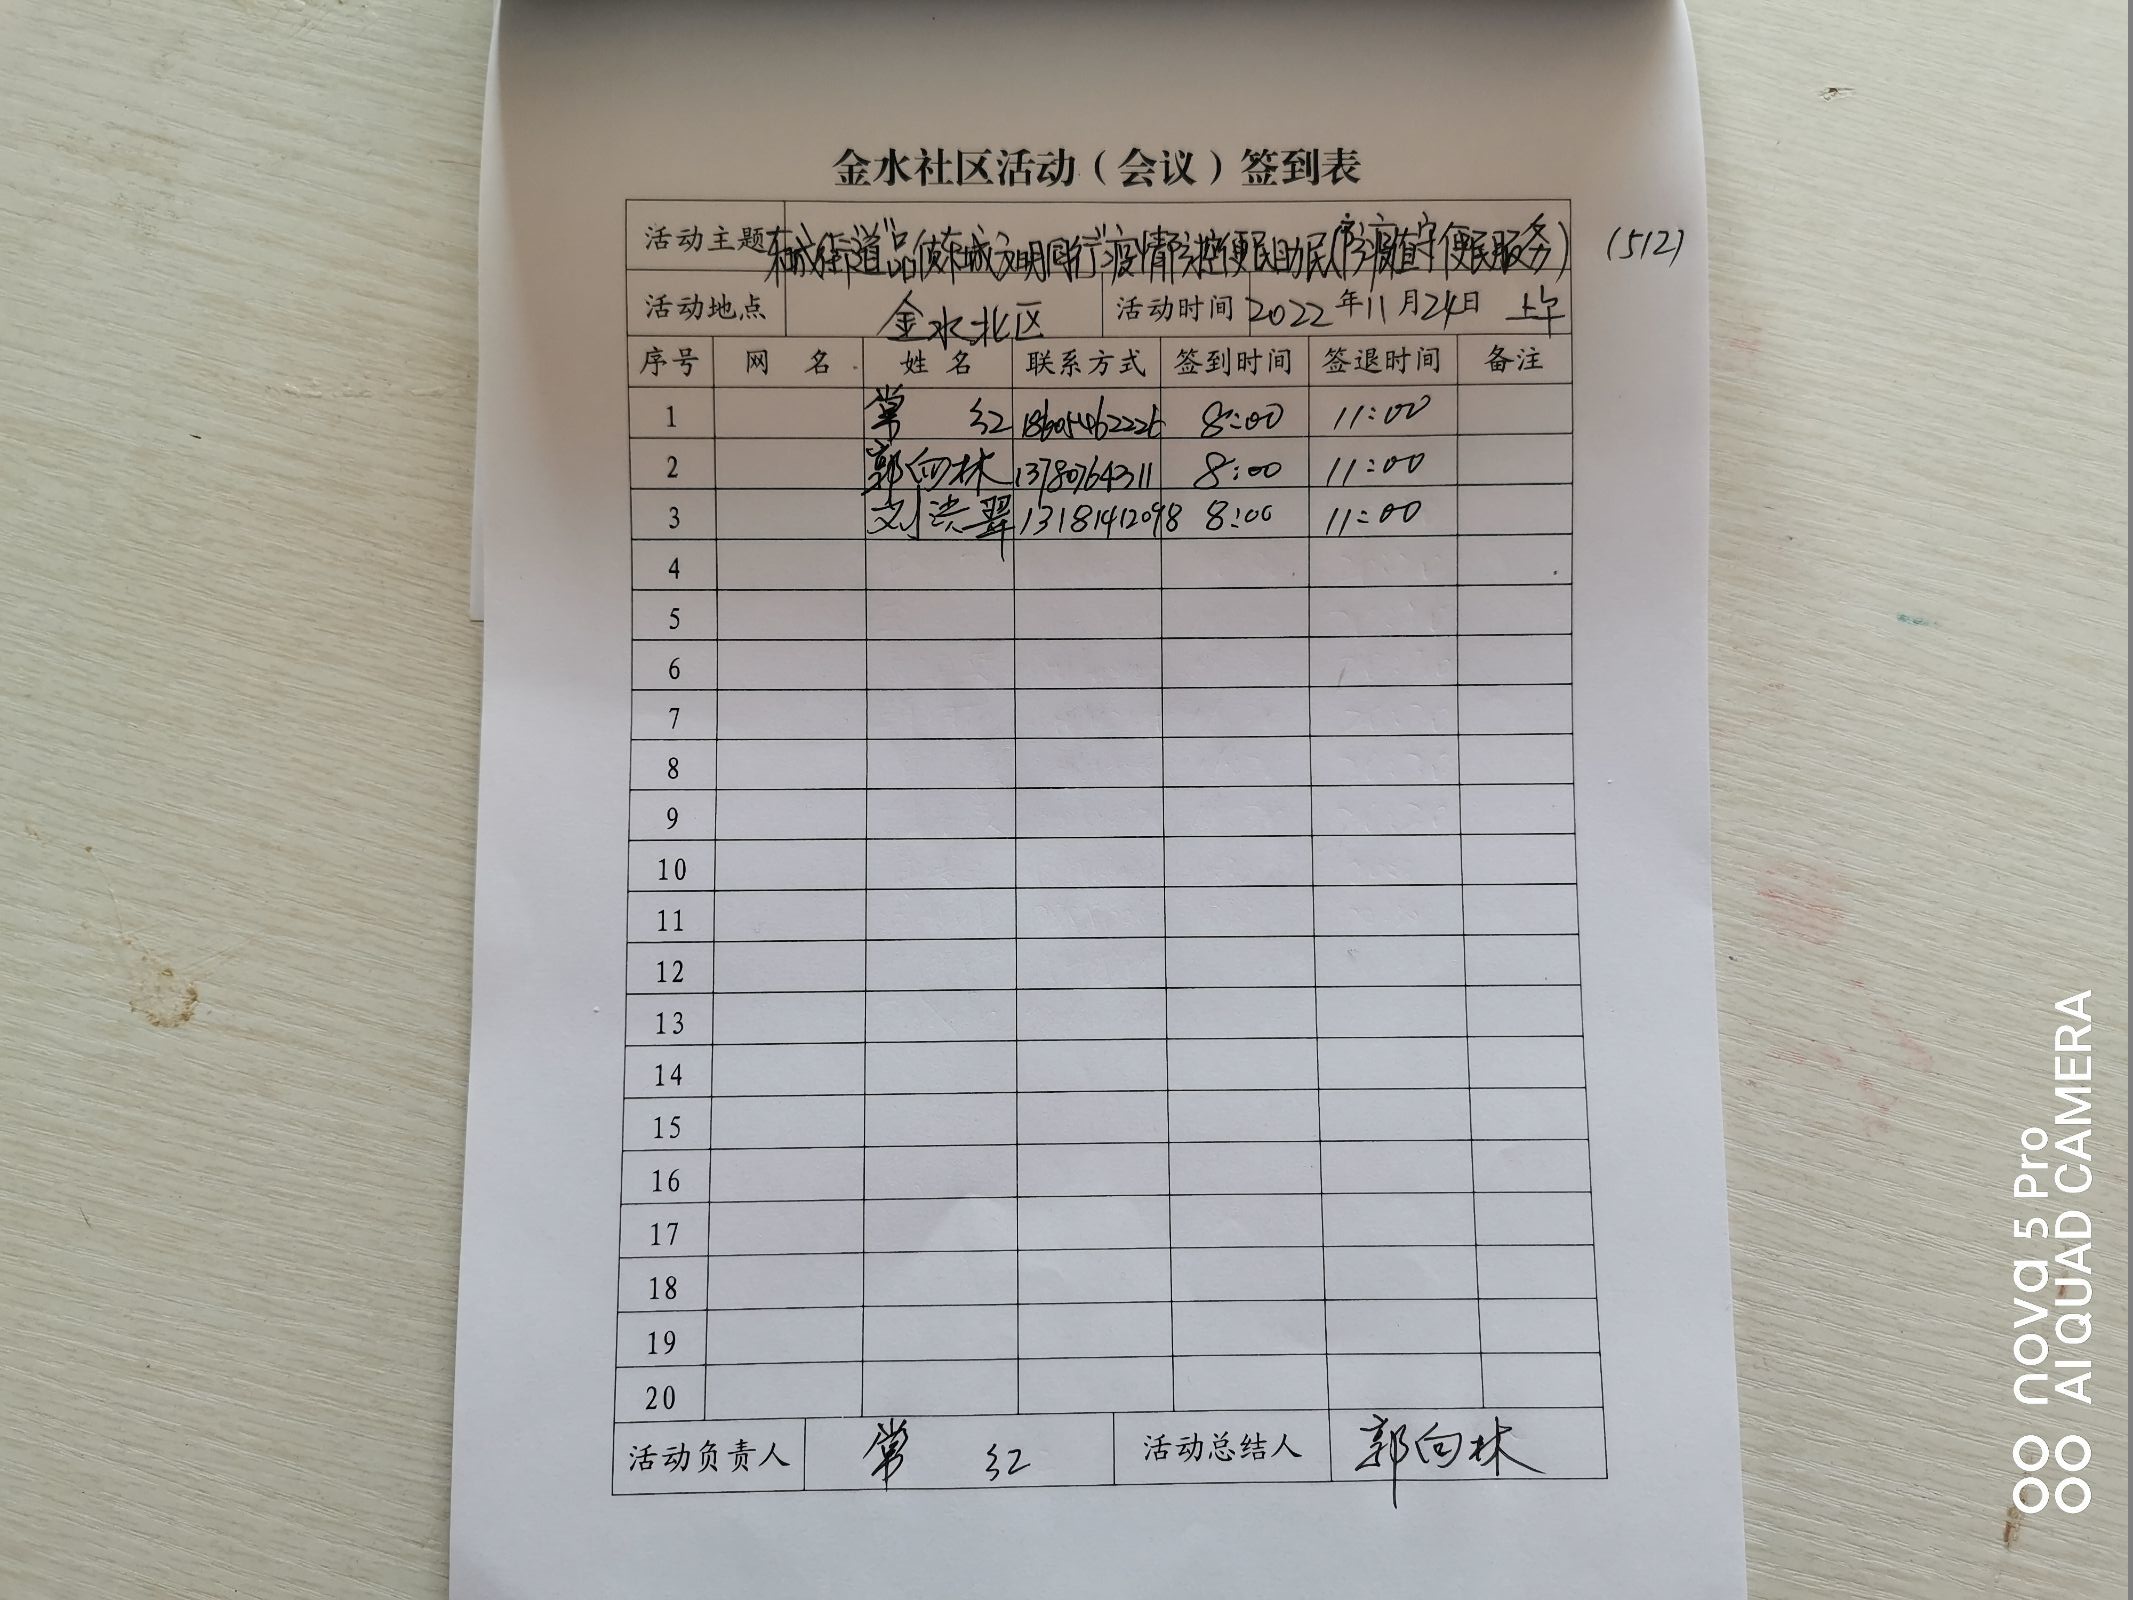 金水社区活动（会议）签到表
活动主题 东城街道"品质东城文明同行"疫情防控便民助民(防疫值守便民服务) (512)
活动地点 金水北区 活动时间 2022年11月24日 上午
序号 网 名 姓 名 联系方式 签到时间 签退时间 备注
1 常 红 18605462226 8:00 11:00
2 郭向林 13780764311 8:00 11:00
3 刘洪翠 13181412098 8:00 11:00
4
5
6
7
8
9
10
11
12
13
14
15
16
17
18
19
20
活动负责人 常 红 活动总结人 郭向林
nova 5 Pro
AI QUAD CAMERA